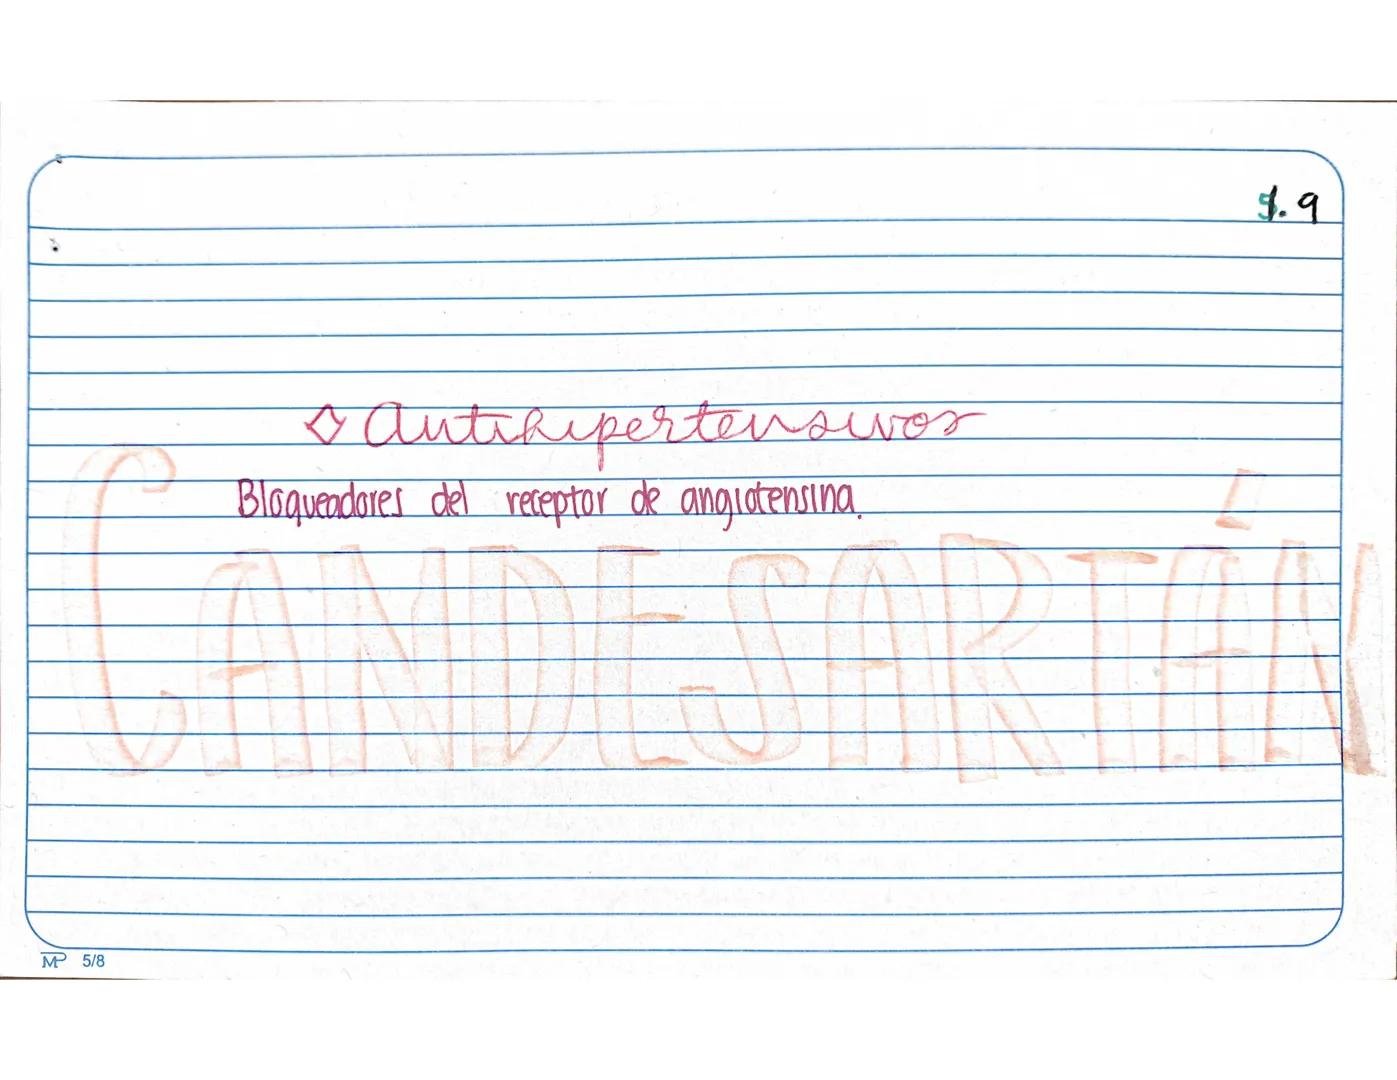 9
◇ Antihipertensivos
Bloqueadores del receptor de angiotensina.
CANDESARTÁN
MP 5/8